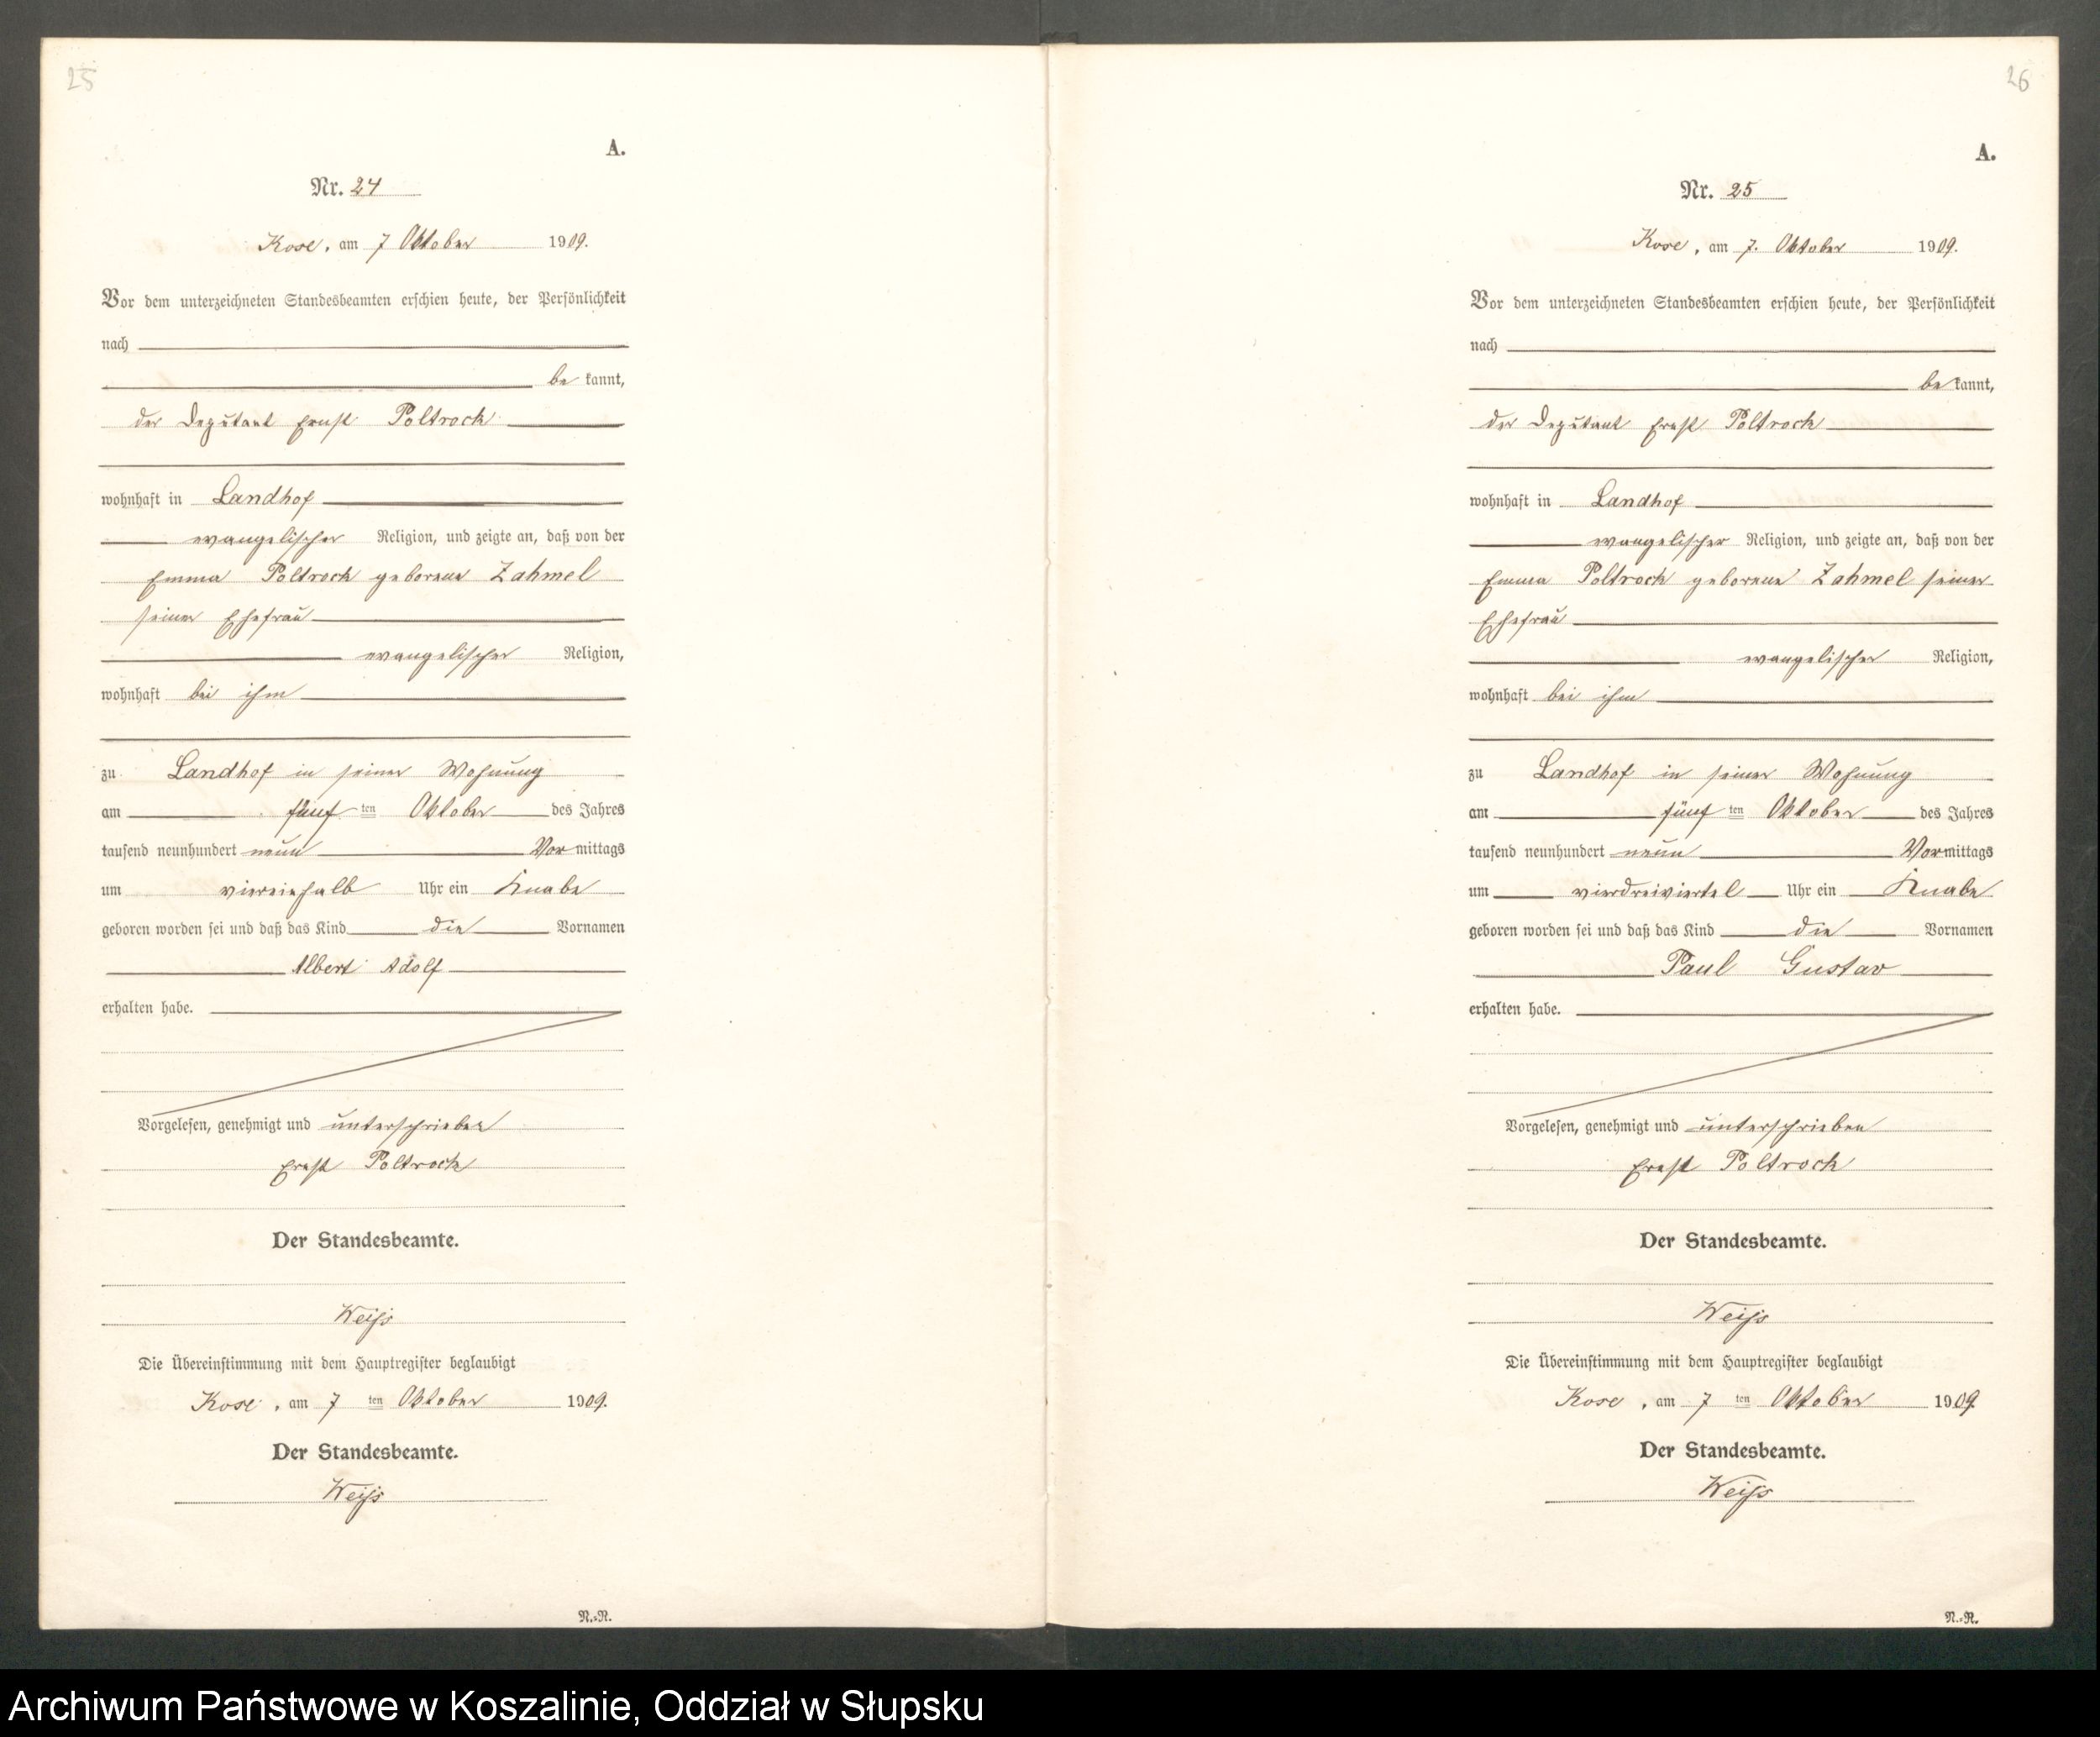 25
A.
Nr. 24
Kose, am 7 Oktober 1909.
Vor dem unterzeichneten Standesbeamten erschien heute, der Persönlichkeit
nach
be kannt,
der Deputant Ernst Poltrock
wohnhaft in Landhof
evangelischer Religion, und zeigte an, daß von der
Emma Poltrock geborene Zahmel
seiner Ehefrau
evangelischer Religion,
wohnhaft bei ihm
zu Landhof in seiner Wohnung
am fünf ten Oktober des Jahres
tausend neunhundert neun Vor mittags
um viereinhalb Uhr ein Knabe
geboren worden sei und daß das Kind die Vornamen
Albert Adolf
erhalten habe.
Vorgelesen, genehmigt und unterschrieben
Ernst Poltrock
Der Standesbeamte.
Weiß
Die Übereinstimmung mit dem Hauptregister beglaubigt
Kose, am 7 ten Oktober 1909.
Der Standesbeamte.
Weiß
N.=R.
26
A.
Nr. 25
Kose, am 7. Oktober 1909.
Vor dem unterzeichneten Standesbeamten erschien heute, der Persönlichkeit
nach
be kannt,
der Deputant Ernst Poltrock
wohnhaft in Landhof
evangelischer Religion, und zeigte an, daß von der
Emma Poltrock geborene Zahmel seiner
Ehefrau
evangelischer Religion,
wohnhaft bei ihm
zu Landhof in seiner Wohnung
am fünf ten Oktober des Jahres
tausend neunhundert neun Vormittags
um vierdreiviertel Uhr ein Knabe
geboren worden sei und daß das Kind die Vornamen
Paul Gustav
erhalten habe.
Vorgelesen, genehmigt und unterschrieben
Ernst Poltrock
Der Standesbeamte.
Weiß
Die Übereinstimmung mit dem Hauptregister beglaubigt
Kose, am 7 ten Oktober 1909
Der Standesbeamte.
Weiß
N.=R.
Archiwum Państwowe w Koszalinie, Oddział w Słupsku